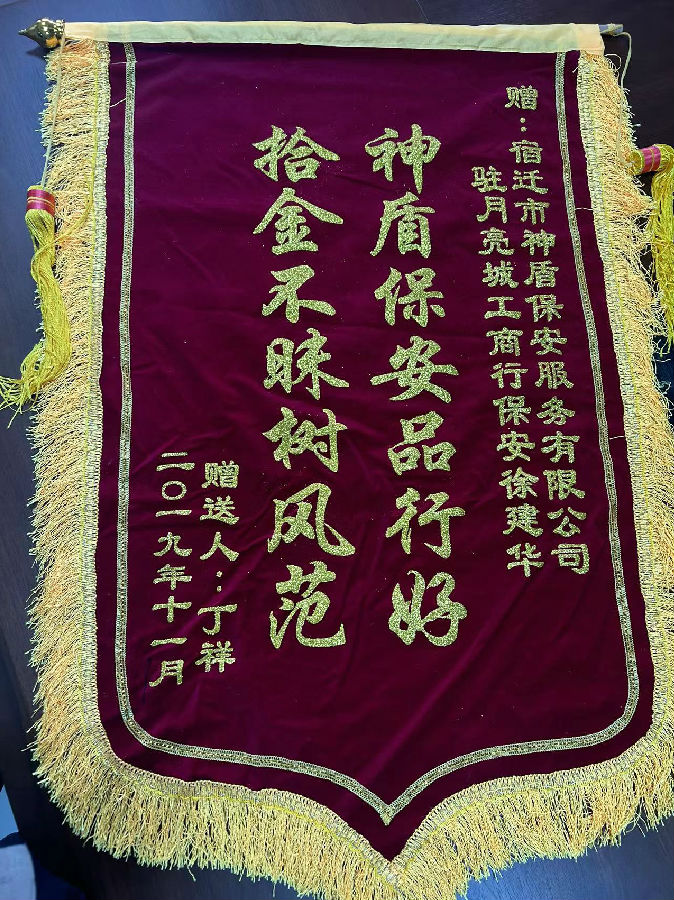 赠：宿迁市神盾保安服务有限公司
驻月亮城工商行保安徐建华
神盾保安品行好
拾金不昧树风范
赠送人：丁祥
二〇一九年十一月